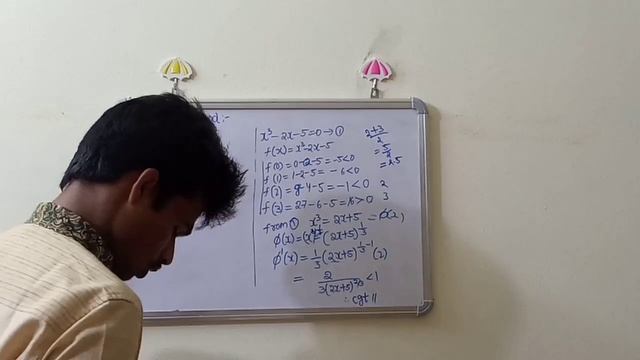 d:-
x³-2x-5=0→①
f(x)=x³-2x-5
f(0)=0-2-5=-5<0
f(1)=1-2-5=-6<0
f(2)=8-4-5=-1<0 2
f(3)=27-6-5=16>0 3
from ① x³=2x+5
ϕ(x)= (2x+5)^1/3
ϕ'(x)=1/3(2x+5)^1/3-1(2)
= 2/3(2x+5)^2/3<1
∴ cgt //
2+3/2
=5/2
=2.5